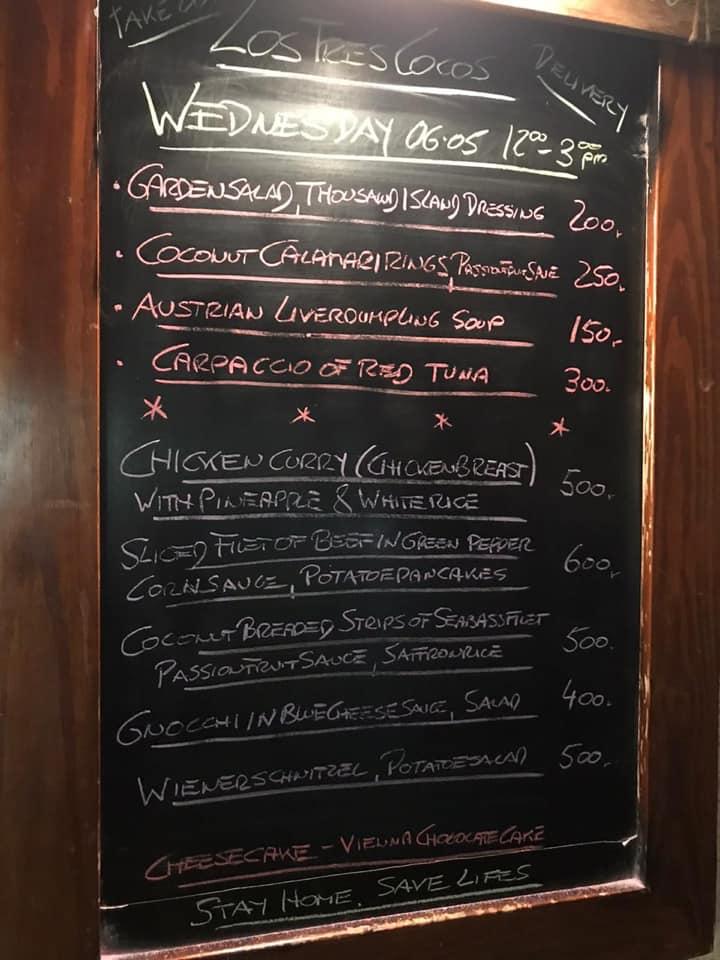 TAKE
LOS TRES COCOS
DELIVERY
WEDNESDAY 06.05 12⁰⁰-3⁰⁰ PM
• GARDEN SALAD, THOUSAND ISLAND DRESSING 200,-
• COCONUT CALAMARI RINGS, PASSIONFRUIT 250,-
• AUSTRIAN LIVERDUMPLING SOUP 150,-
• CARPACCIO OF RED TUNA 300.-
* * * *
CHICKEN CURRY (CHICKENBREAST)
WITH PINEAPPLE & WHITE RICE 500,-
SLICED FILET OF BEEF IN GREEN PEPPER
CORNSAUCE, POTATOEPANCAKES 600,-
COCONUT BREADED STRIPS OF SEABASSFILET
PASSIONFRUIT SAUCE, SAFFRONRICE 500.-
GNOCCHI IN BLUECHEESE SAUCE, SALAD 400.-
WIENERSCHNITZEL, POTATOESALAD 500,-
CHEESECAKE - VIENNA CHOCOLATE CAKE
STAY HOME. SAVE LIFES